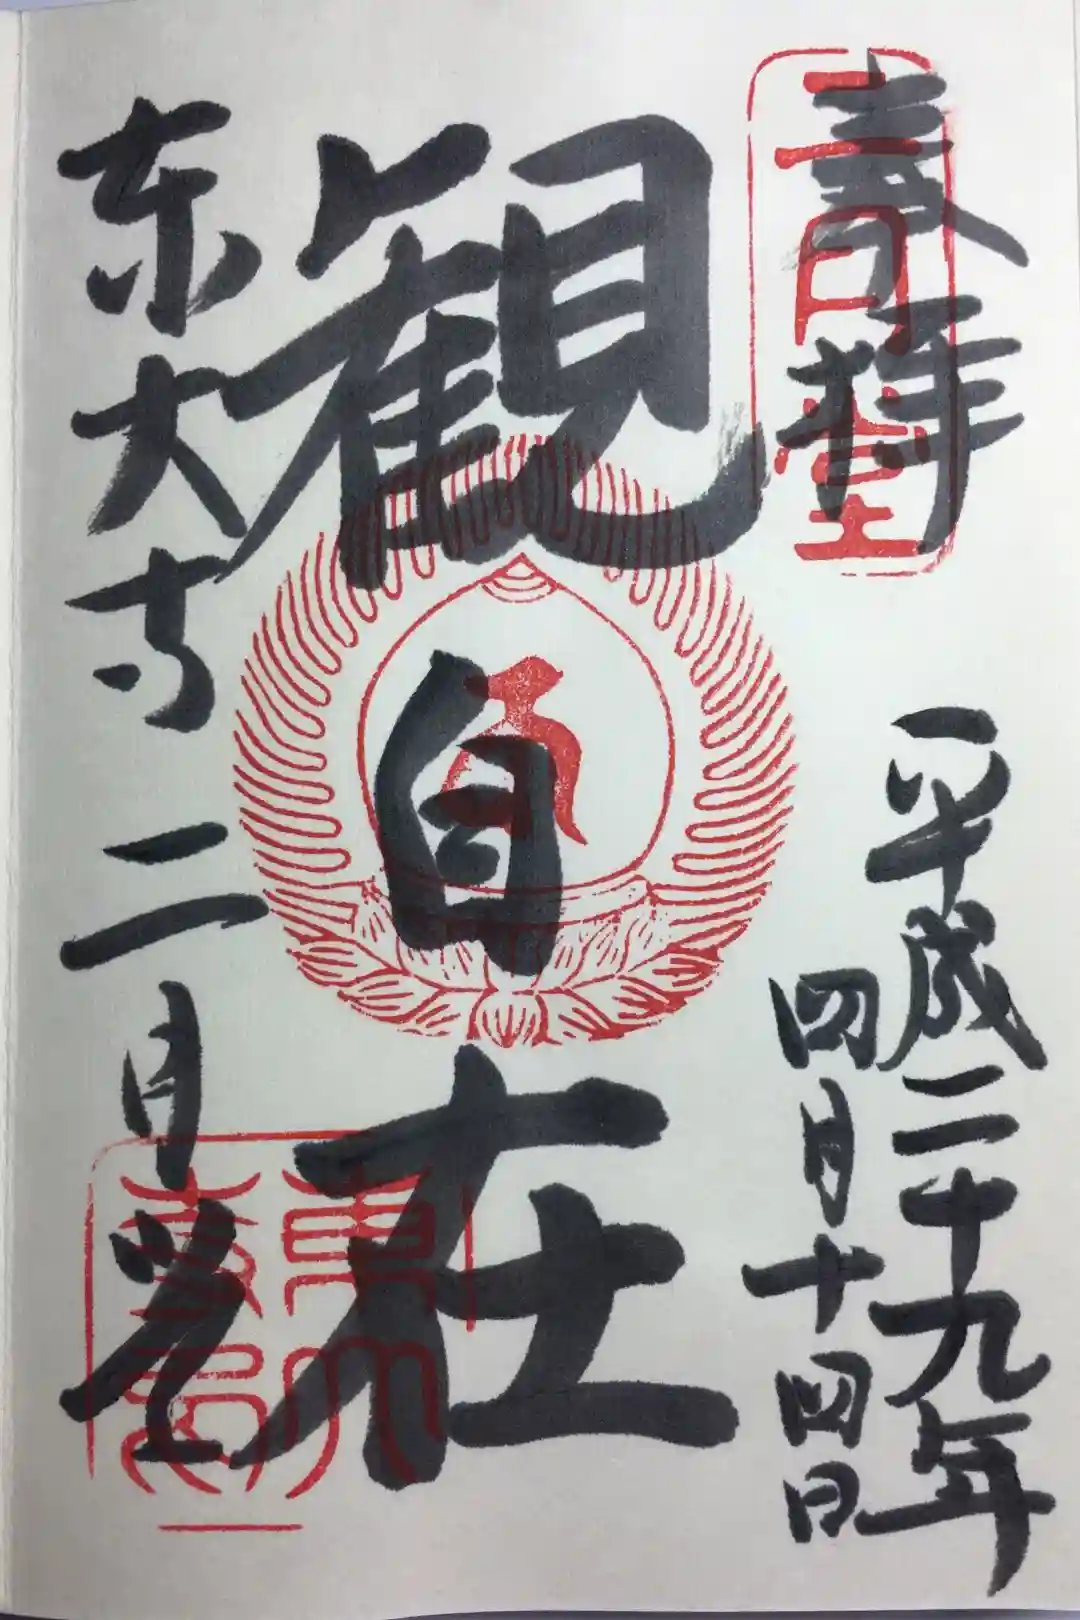 奉拝
二月堂
平成二十九年
四月十四日
観自在
東大寺二月堂